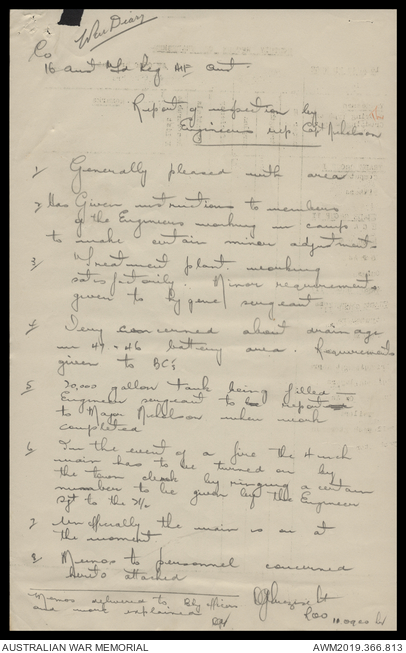 War Diary
Co
16 Aust Fld Reg AIF Aust.
Report of inspection by
Engineers rep. Capt Nihelson
1/ Generally pleased with area
2/ Has Given instructions to members
of the Engineers working in camp
to make certain minor adjustments
3/ Treatment plant working
satisfactorily. Minor requirements
given to hygiene sergeant
4/ Very concerned about drainage
in 47 - 46 battery area. Requirements
given to BC's
5/ 20,000 gallon tank being filled
Engineer sergeant to report
to Major when work
completed
6/ In the event of a fire the 4 inch
main has to be turned on by
the town clerk by ringing a certain
number to be given by the Engineer
Sgt to the
7/ Unofficially the main is on at
the moment
8/ Memos to personnel concerned
hereto attached
Memos delivered to Bty officers
and work explained
Lt
AUSTRALIAN WAR MEMORIAL
AWM2019.366.813